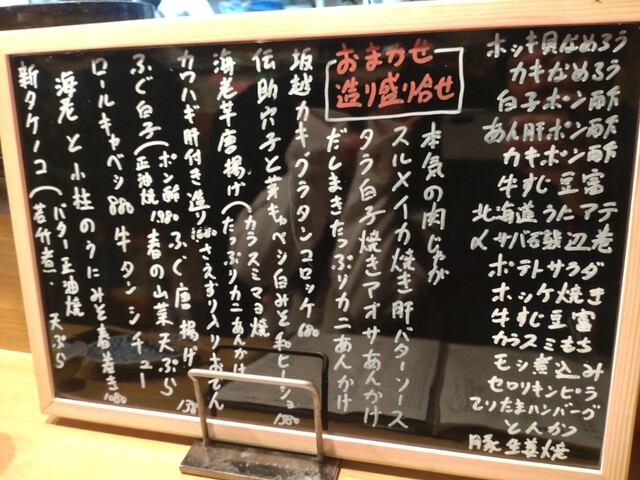 ホッキ貝なめろう
カキなめろう
白子ポン酢
あん肝ポン酢
カキポン酢
牛すじ豆富
北海道うにアテ
〆サバ石磯辺巻
ポテトサラダ
ホッケ焼き
牛すじ豆富
カラスミもち
モツ煮込み
セロリキンピラ
てりたまハンバーグ
とんかつ
豚生姜焼
おまかせ
造り盛り合せ
本気の肉じゃが
スルメイカ焼き肝バターソース
タラ白子焼きアオサあんかけ
だしまきたっぷりカニあんかけ
坂越カキグラタンコロッケ 680
伝助穴子と芽キャベツ白みそ和ヒーショ 1380
海老芋唐揚げ(カラスミマヨ焼
たっぷりカニあんかけ
カワハギ肝付き造り1680 さえずり入りおでん
ふぐ白子(ポン酢 1980
正油焼
ふぐ唐揚げ 1380
春の山菜天ぷら
ロールキャベツ 880 牛タンシチュー
海老と小柱のうにみそ春巻き 1080
新タケノコ(バター正油焼
若竹煮、天ぷら